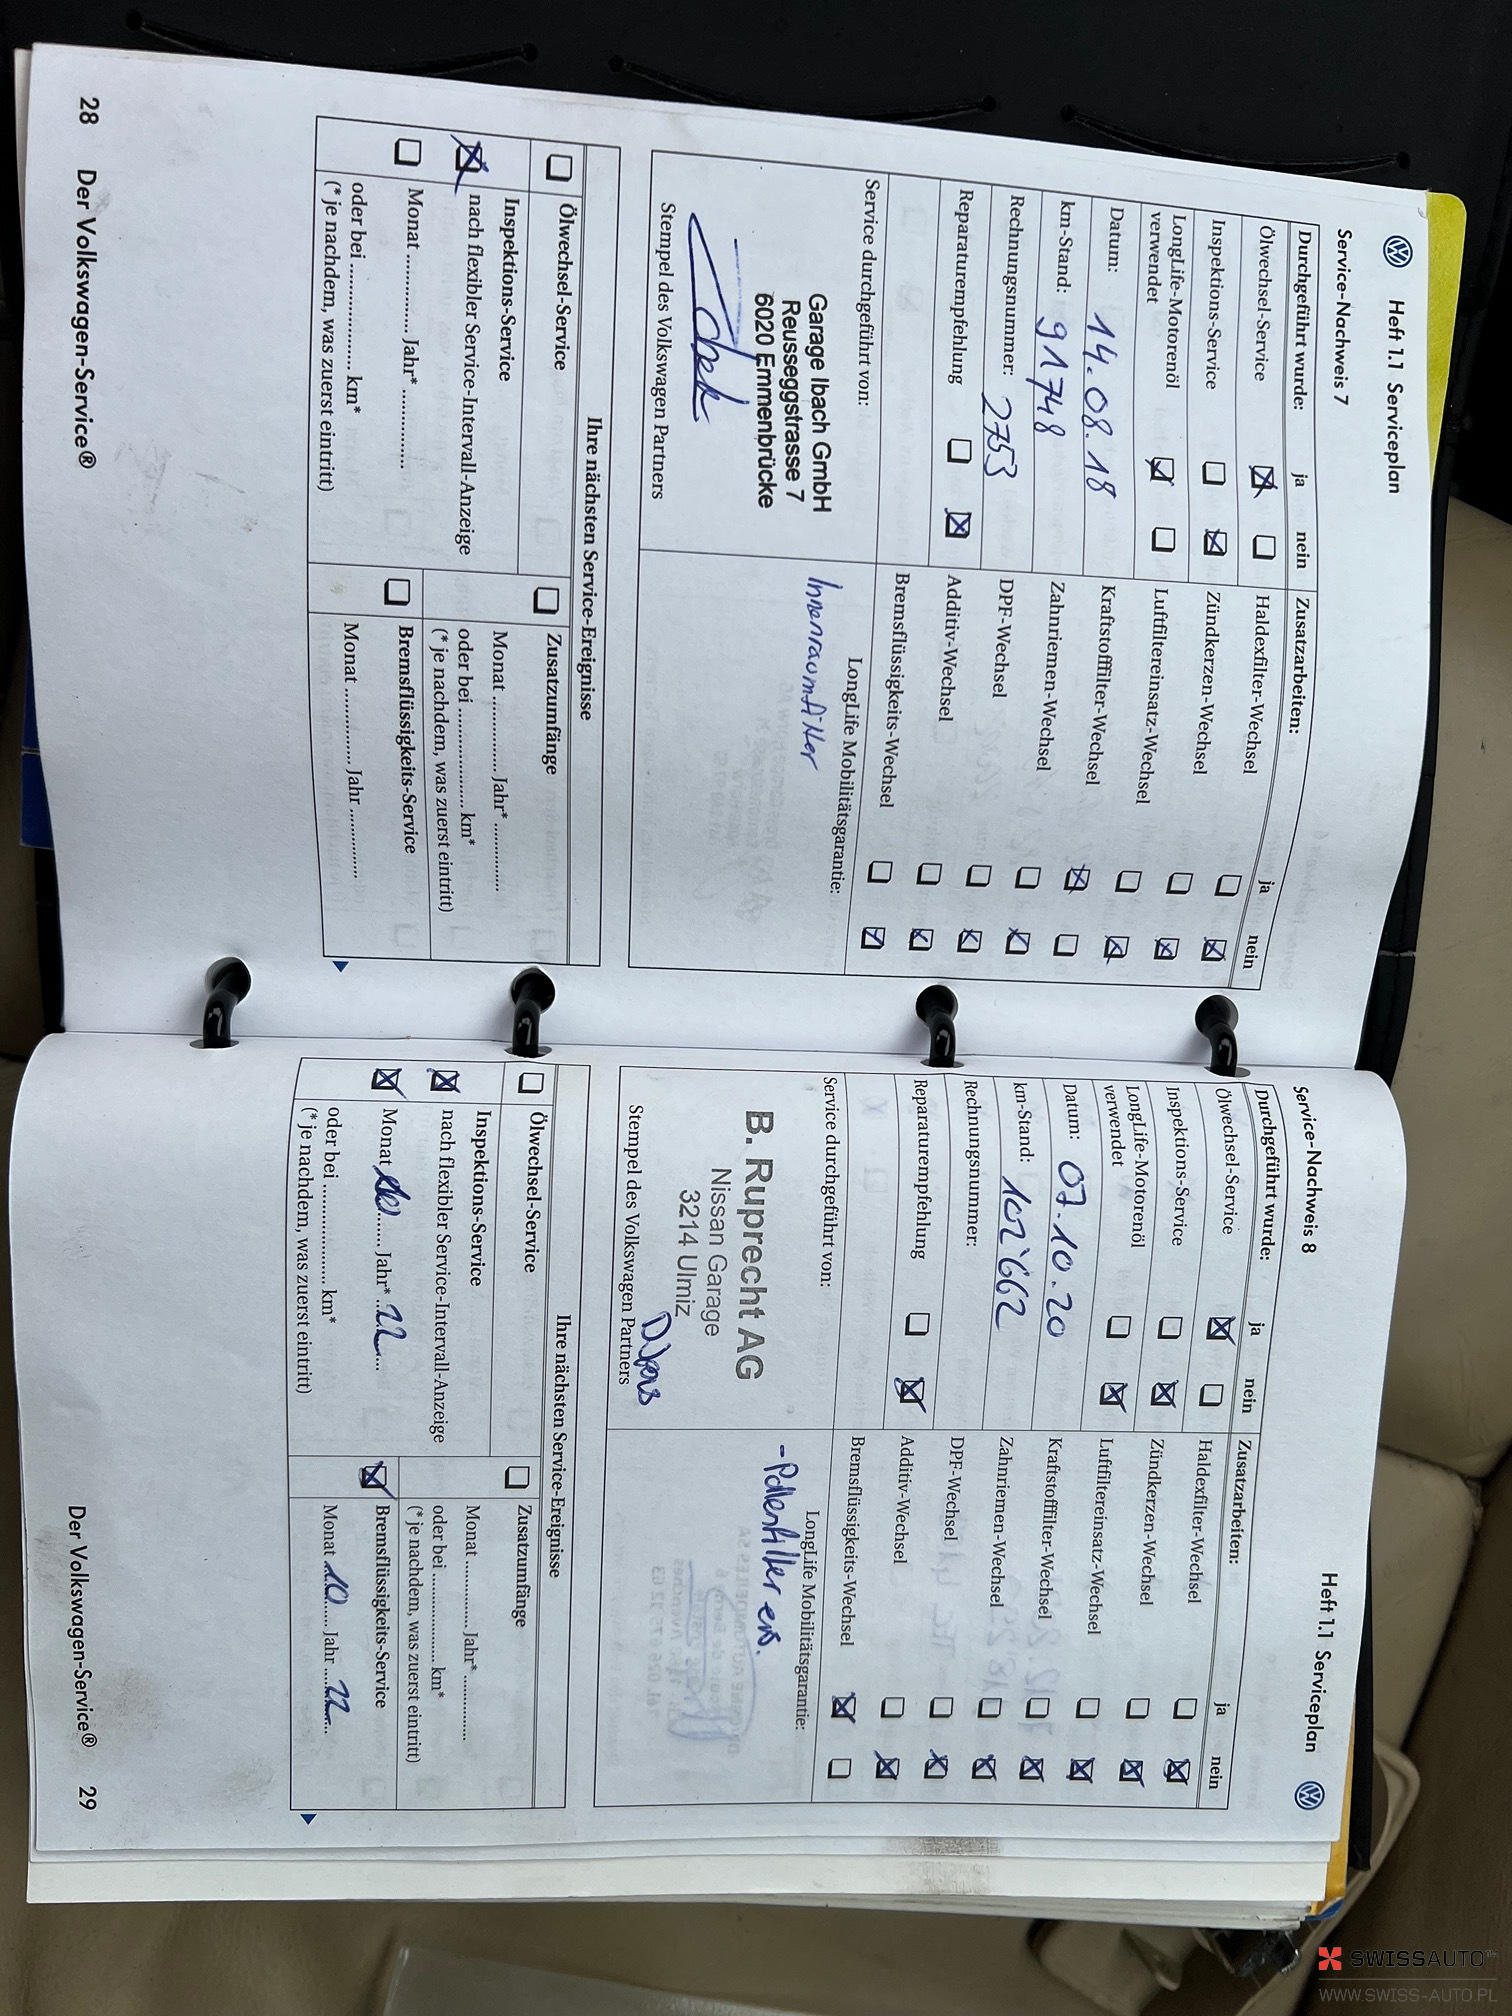 Heft 1.1 Serviceplan
Service-Nachweis 7
Durchgeführt wurde: ja nein
Ölwechsel-Service
Inspektions-Service
LongLife-Motorenöl
verwendet
Datum: 14.08.18
km-Stand: 91748
Rechnungsnummer: 2753
Reparaturempfehlung
Service durchgeführt von:
Garage Ibach GmbH
Reusseggstrasse 7
6020 Emmenbrücke
Stempel des Volkswagen Partners
Zusatzarbeiten: ja nein
Haldexfilter-Wechsel
Zündkerzen-Wechsel
Luftfiltereinsatz-Wechsel
Kraftstofffilter-Wechsel
Zahnriemen-Wechsel
DPF-Wechsel
Additiv-Wechsel
Bremsflüssigkeits-Wechsel
LongLife Mobilitätsgarantie:
Innenraumfilter
Ihre nächsten Service-Ereignisse
Ölwechsel-Service
Inspektions-Service
nach flexibler Service-Intervall-Anzeige
Monat ............... Jahr* ...............
oder bei .................... km*
(* je nachdem, was zuerst eintritt)
Zusatzumfänge
Monat ............... Jahr* ...............
oder bei .................... km*
(* je nachdem, was zuerst eintritt)
Bremsflüssigkeits-Service
Monat ............... Jahr ...............
28 Der Volkswagen-Service®
Heft 1.1 Serviceplan
Service-Nachweis 8
Durchgeführt wurde: ja nein
Ölwechsel-Service
Inspektions-Service
LongLife-Motorenöl
verwendet
Datum: 07.10.20
km-Stand: 102'662
Rechnungsnummer:
Reparaturempfehlung
Service durchgeführt von:
B. Ruprecht AG
Nissan Garage
3214 Ulmiz
Stempel des Volkswagen Partners
Zusatzarbeiten: ja nein
Haldexfilter-Wechsel
Zündkerzen-Wechsel
Luftfiltereinsatz-Wechsel
Kraftstofffilter-Wechsel
Zahnriemen-Wechsel
DPF-Wechsel
Additiv-Wechsel
Bremsflüssigkeits-Wechsel
LongLife Mobilitätsgarantie:
- Pollenfilter ers.
Ihre nächsten Service-Ereignisse
Ölwechsel-Service
Inspektions-Service
nach flexibler Service-Intervall-Anzeige
Monat Jahr* 22
oder bei .................... km*
(* je nachdem, was zuerst eintritt)
Zusatzumfänge
Monat ............... Jahr* ...............
oder bei .................... km*
(* je nachdem, was zuerst eintritt)
Bremsflüssigkeits-Service
Monat 10 Jahr 22
Der Volkswagen-Service® 29
SWISSAUTO
WWW.SWISS-AUTO.PL